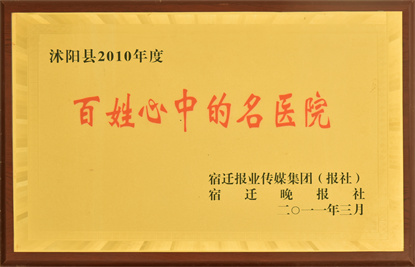 沭阳县2010年度
百姓心中的名医院
宿迁报业传媒集团（报社）
宿迁晚报社
二〇一一年三月